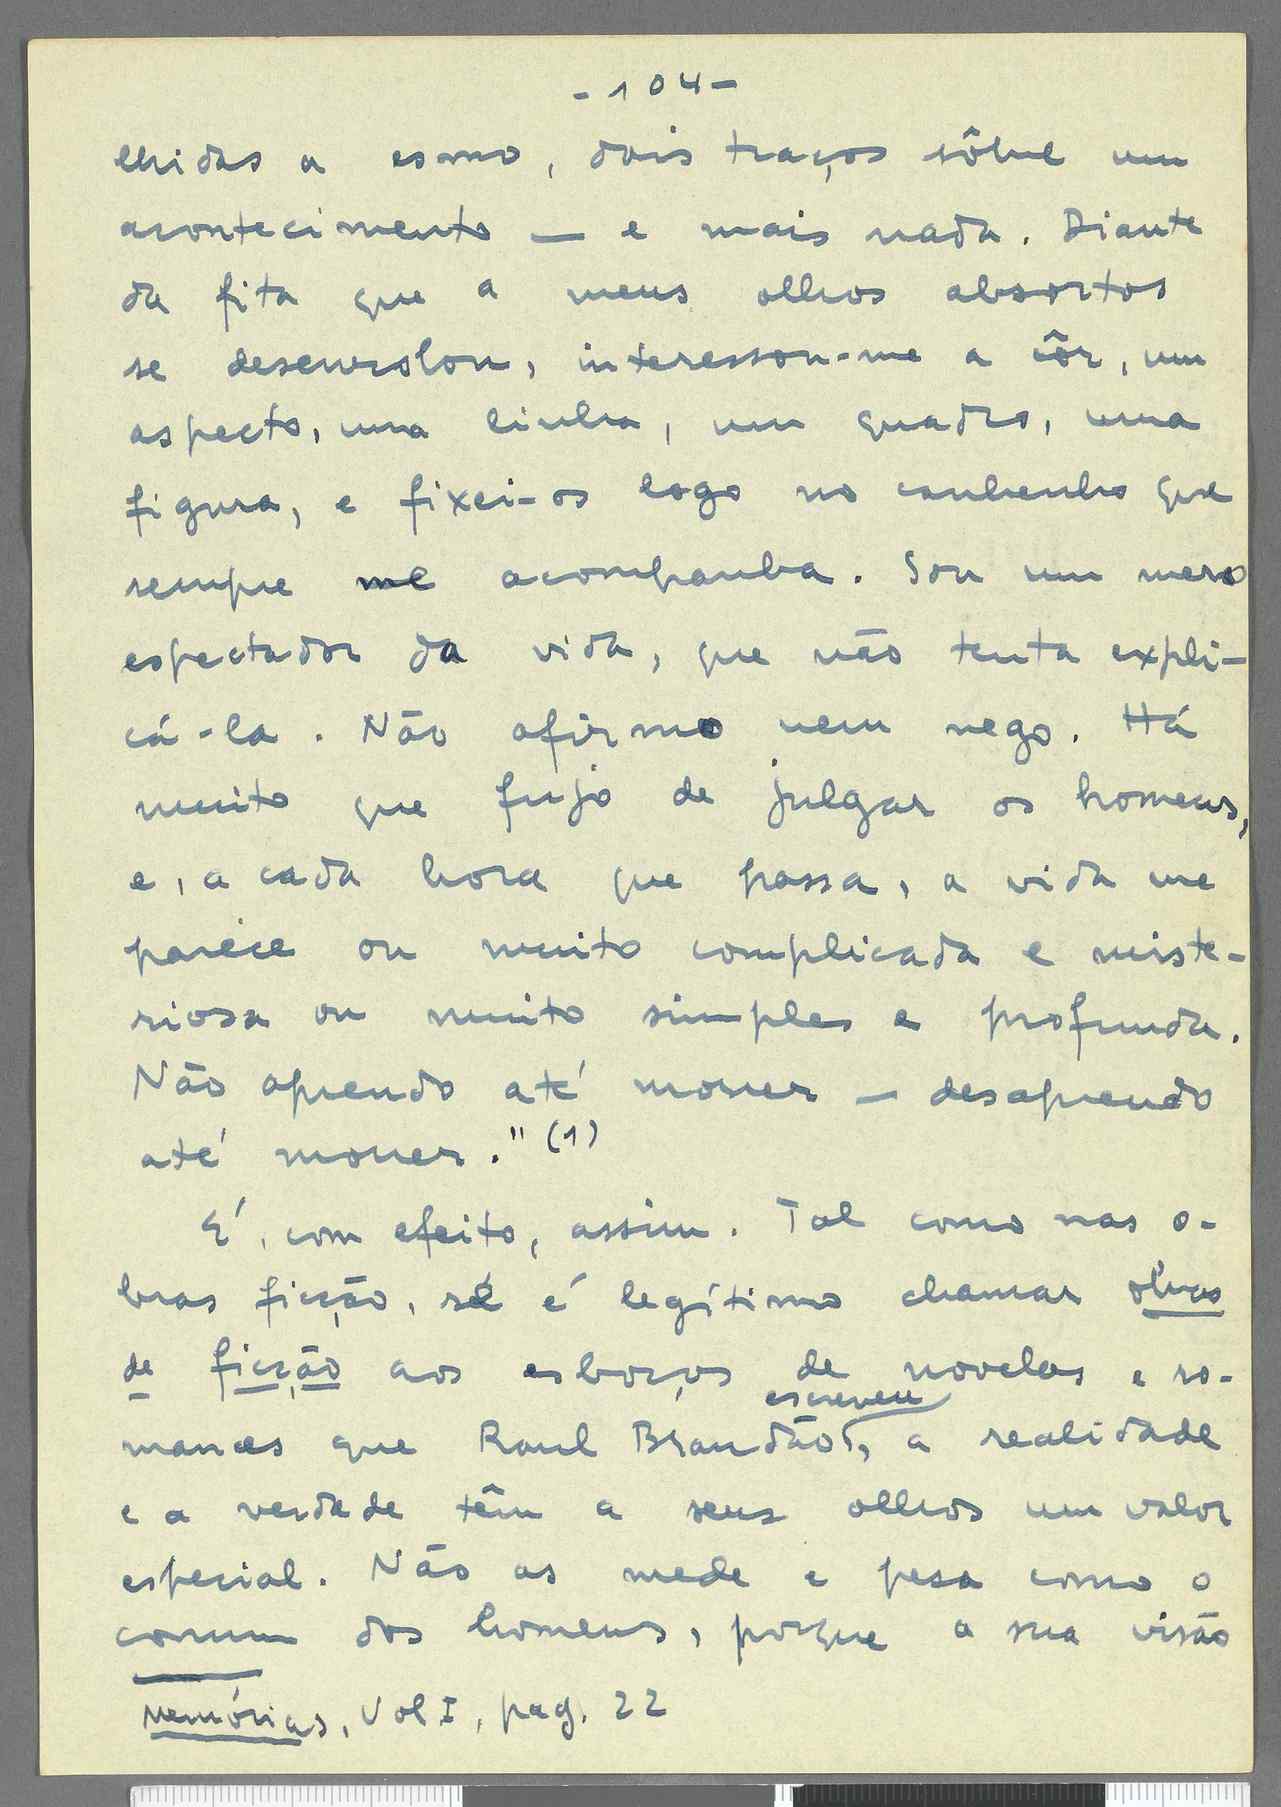 - 104 -
lhidas a esmo, dois traços sôbre um
acontecimento — e mais nada. Diante
da fita que a meus olhos absortos
se desenrolou, interessou-me a côr, um
aspecto, uma linha, um quadro, uma
figura, e fixei-os logo no canhenho que
sempre me acompanha. Sou um mero
espectador da vida, que não tenta expli-
cá-la. Não afirmo nem nego. Há
muito que fujo de julgar os homens,
e, a cada hora que passa, a vida me
parece ou muito complicada e miste-
riosa ou muito simples e profunda.
Não aprendo até morrer — desaprendo
até morrer." (1)
É, com efeito, assim. Tal como nas o-
bras ficção, se é legítimo chamar obras
de ficção aos esboços de novelas e ro-
escreveu
mances que Raul Brandão, a realidade
e a verdade têm a seus olhos um valor
especial. Não as mede e pesa como o
comum dos homens, porque a sua visão
Memórias, Vol I, pag. 22